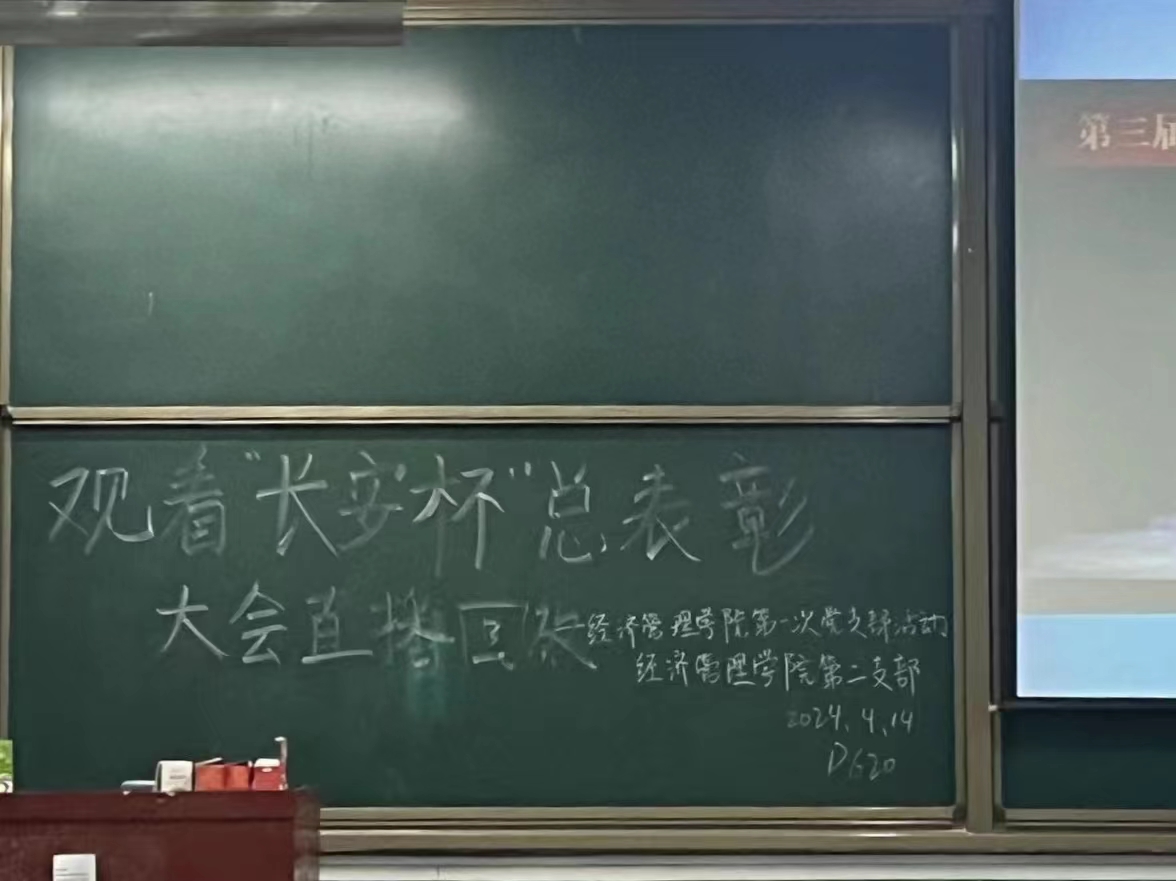 观看“长安杯”总表彰
大会直播回放
—经济管理学院第一次党支部活动
经济管理学院第二支部
2024.4.14
D620
第三届